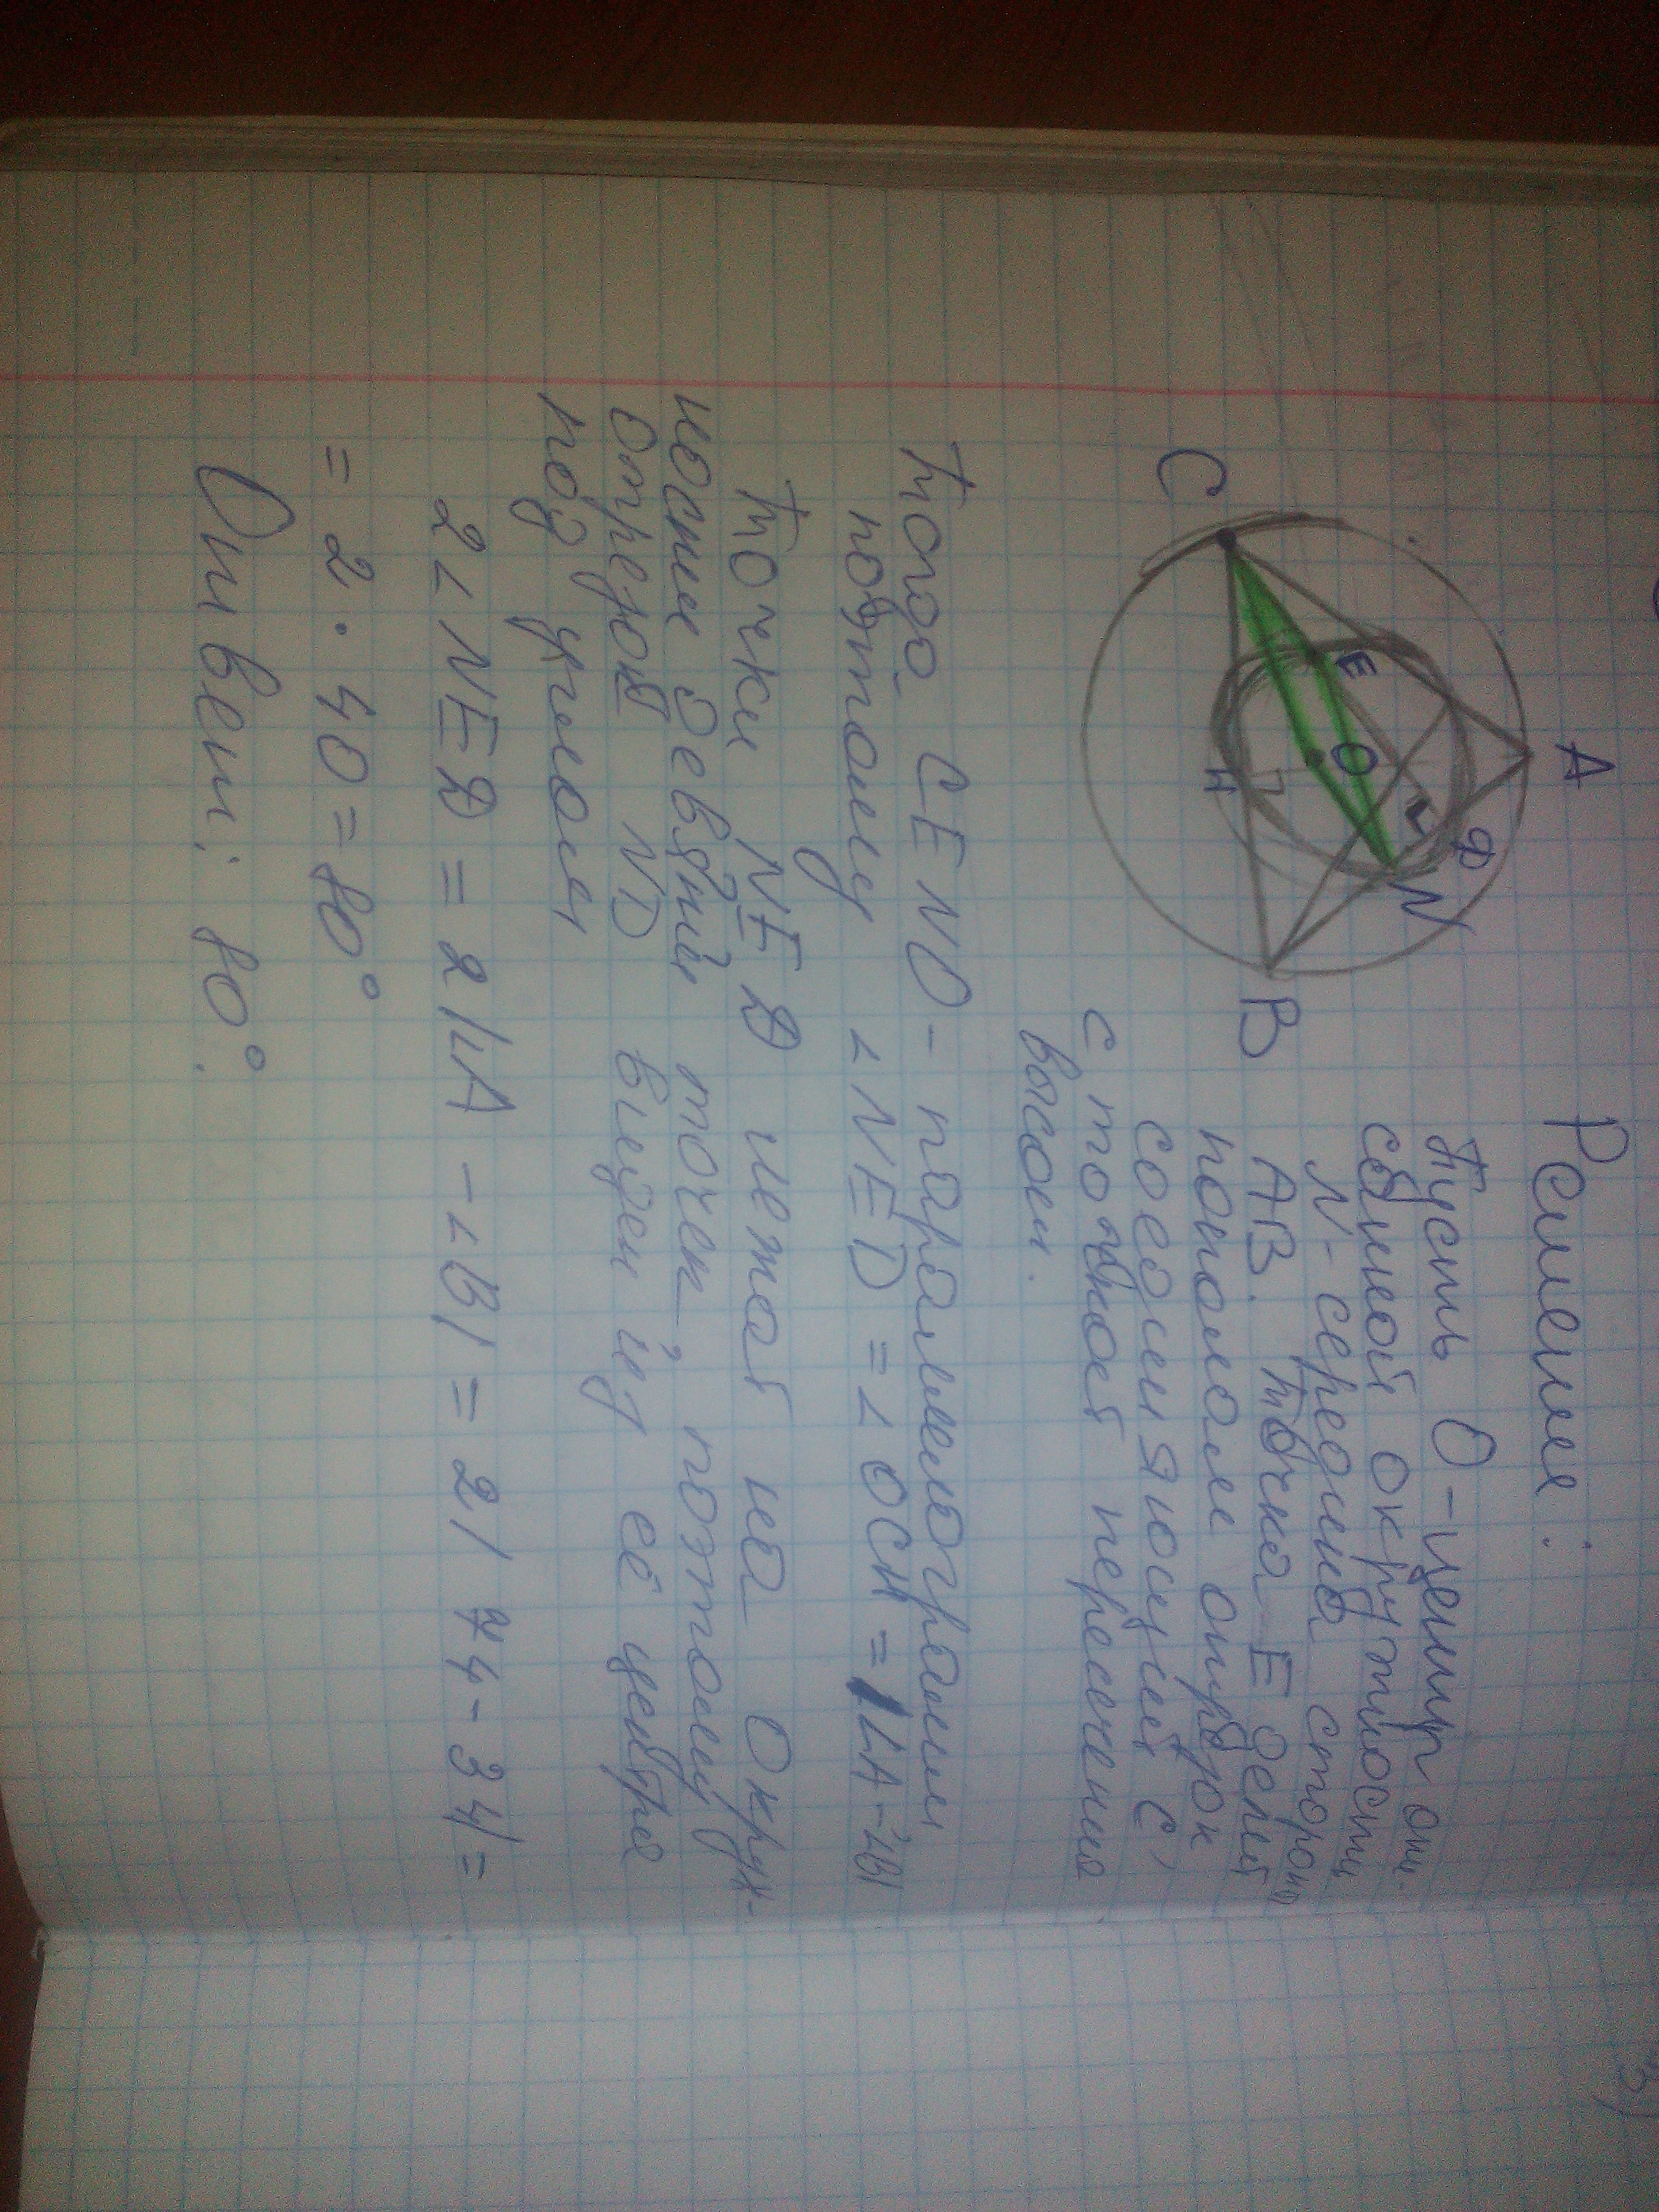 Решение:
Пусть О - центр опи-
санной окружности
N - середина стороны
АВ. точка Е делит
пополам отрезок
соединяющий С,
с точкой пересечения
высот.
A
B
C
E
O
L
D
N
H
тогда CENO - параллелограмм
поэтому ∠NED = ∠OCH = |∠A-∠B|
точки NED лежат на окруж-
ности девяти точек, поэтому
отрезок ND виден из её центра
под углом
2∠NED = 2|∠A - ∠B| = 2|74-34| =
= 2 · 40 = 80°
Ответ: 80°.
3)